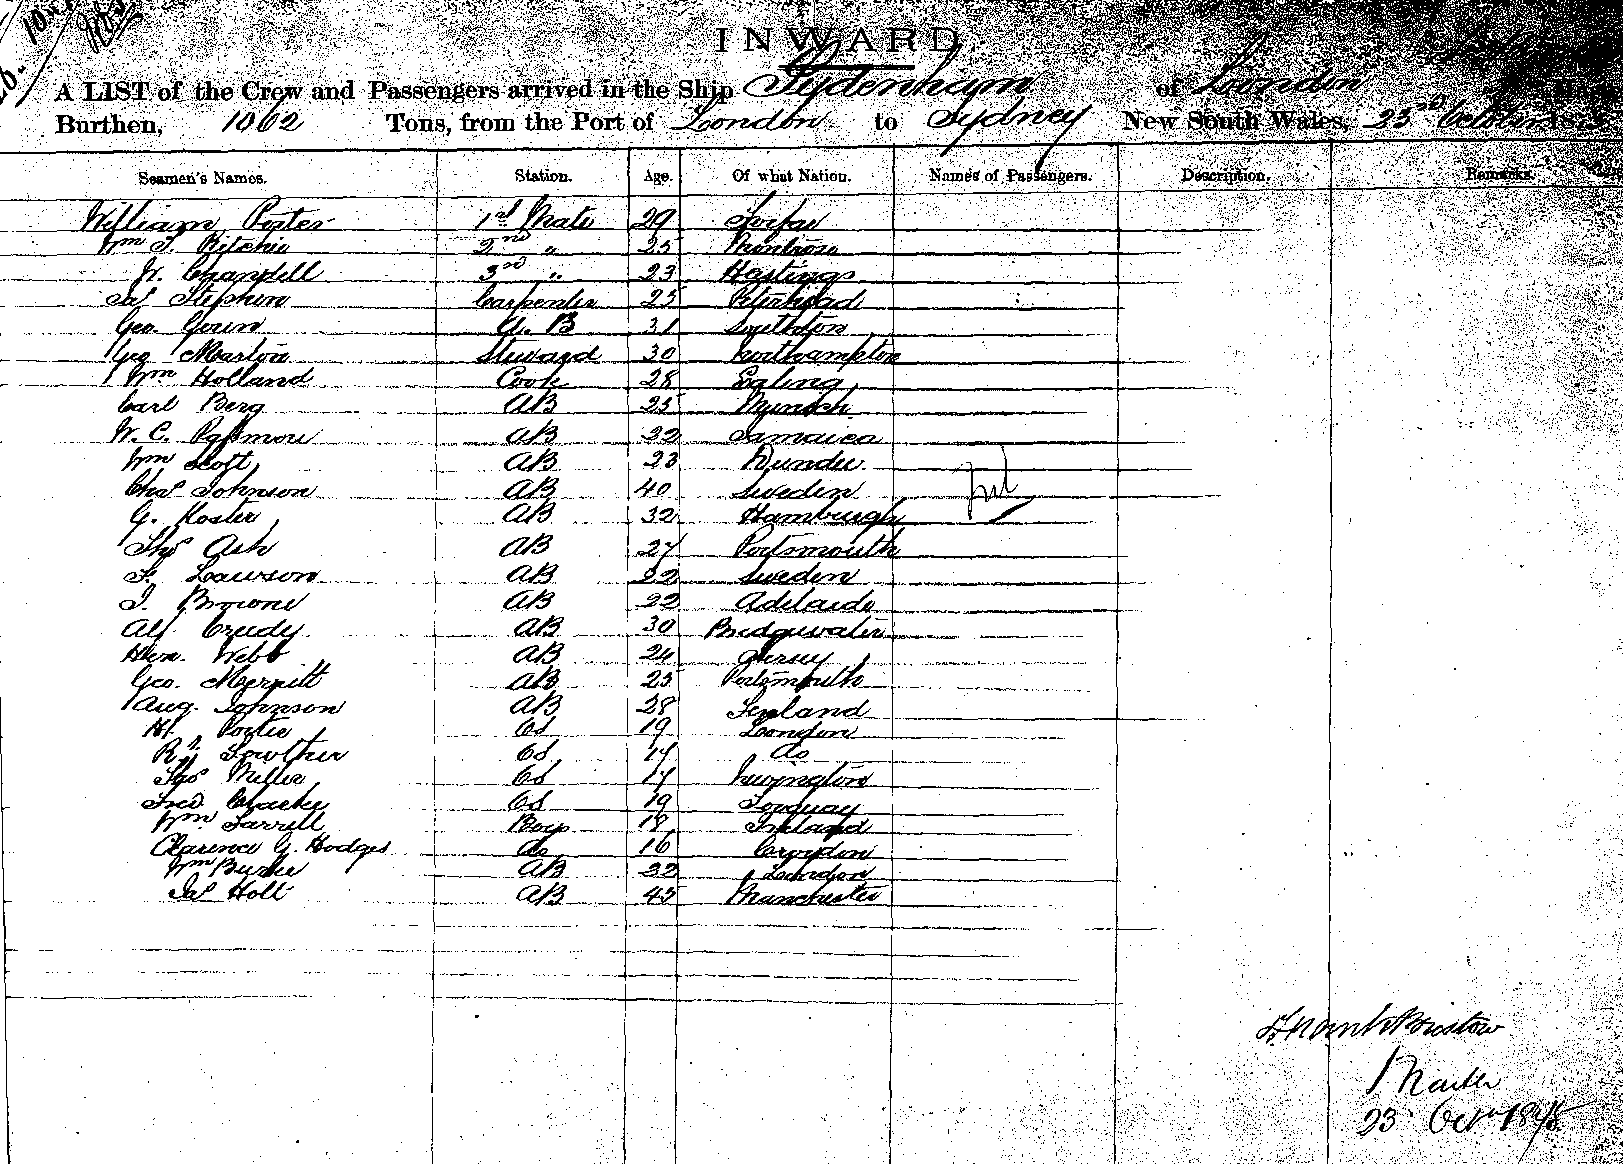 INWARD.
A LIST of the Crew and Passengers arrived in the Ship Sydenham of London
Burthen, 1062 Tons, from the Port of London to Sydney New South Wales, 23rd October
Seamen's Names. Station. Age. Of what Nation. Names of Passengers. Description. Remarks.
William Porter 1st Mate 29 Forfar
Wm Ritchie 2nd " 25 Montrose
W. Chandell 3rd " 23 Hastings
Jas Stephen Carpenter 25 Peterhead
Geo. A. B 31
Geo Marton Steward 30 Northampton
Wm Holland Cook 28 Ealing
Carl Berg AB 25 Munich
W. C. Passmore AB 32 Jamaica
Wm Scott AB 23 Dundee
Chas Johnson AB 40 Sweden nil
G. Koster AB 32 Hamburgh
Thos Ash AB 27 Portsmouth
F. Lawson AB 22 Sweden
J. Browne AB 22 Adelaide
Alf Creedy AB 30 Bridgewater
Hen. Webb AB 24 Jersey
Geo. Merritt AB 25 Portsmouth
Aug. Johnson AB 28 Finland
H. Porter OS 19 London
Rd Lowther OS 17 do
Thos Miller OS 17 Newington
Fred Charley OS 19 Torquay
Wm Farrell Boy 18 Ireland
Clarence G. Hodges do 16 Croydon
Wm Burke AB 32 London
Jas Holt AB 45 Manchester
Frank Bristow
Master
23 Octr 1875